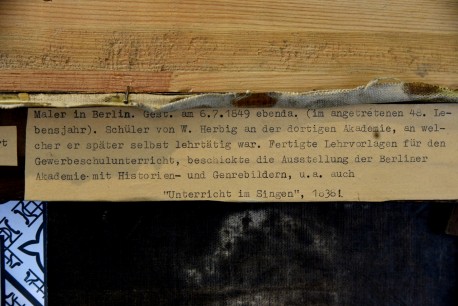 Maler in Berlin. Gest. am 6.7.1849 ebenda. (im angetretenen 48. Le-
bensjahr). Schüler von W. Herbig an der dortigen Akademie, an wel-
cher er später selbst lehrtätig war. Fertigte Lehrvorlagen für den
Gewerbeschulunterricht, beschickte die Ausstellung der Berliner
Akademie mit Historien- und Genrebildern, u.a. auch
"Unterricht im Singen", 1838!